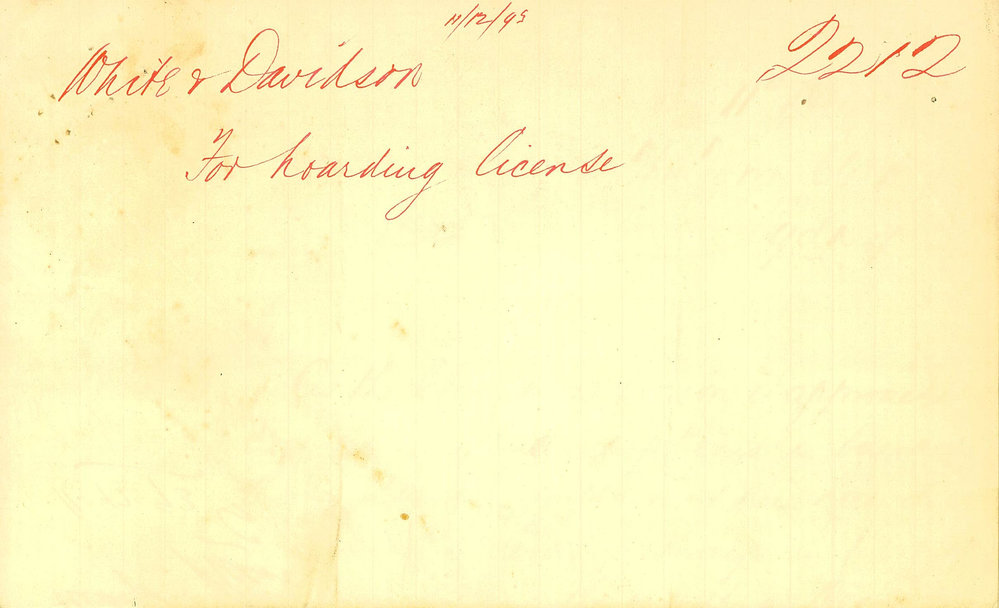 11/12/95
White & Davidson 2212
For hoarding license